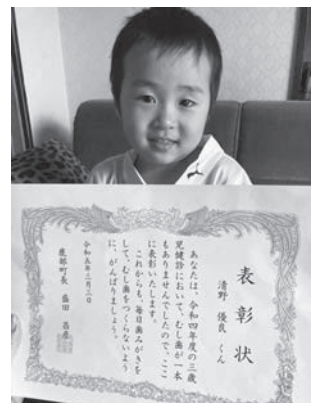 表彰状
清野 優良 くん
あなたは、令和四年度の三歳
児健診において、むし歯が一本
もありませんでしたので、ここ
に表彰いたします。
これからも、毎日歯みがきを
して、むし歯をつくらないよう
に、がんばりましょう。
令和五年三月三日
鹿部町長 盛田 昌彦